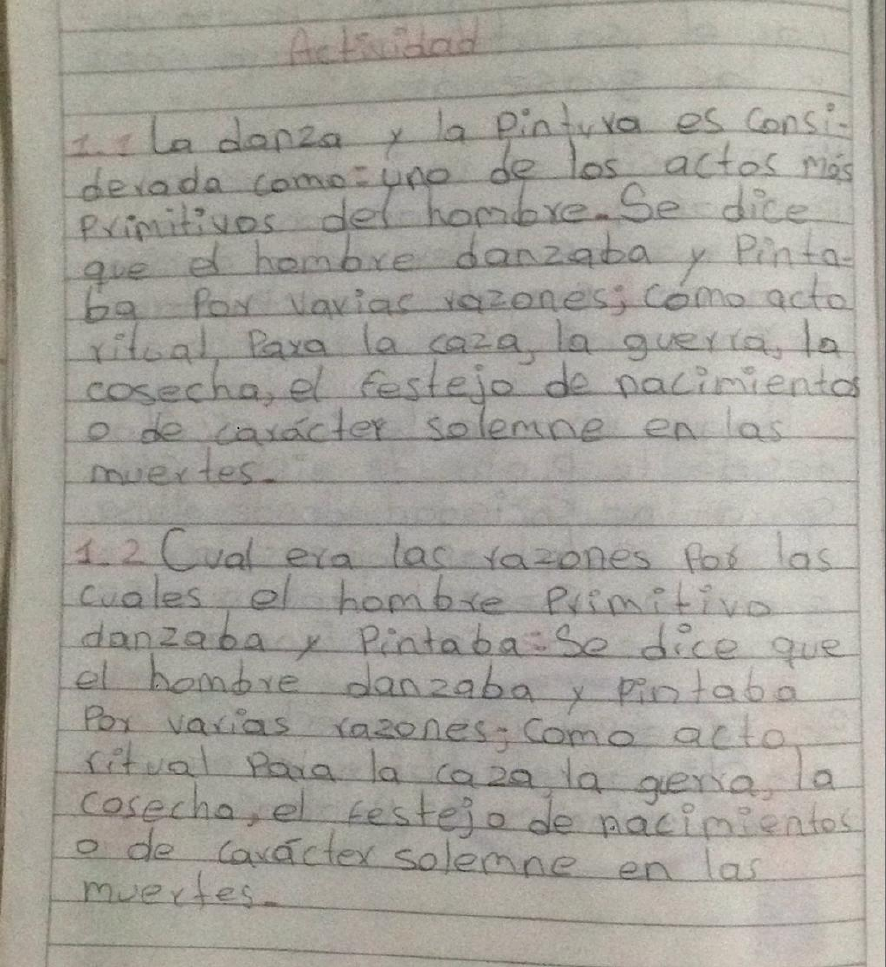 Actividad
1.1 La danza y la Pintura es Consi-
derada como: uno de los actos más
Primitivos del hombre. Se dice
que el hombre danzaba y Pinta-
ba Por varias razones; como acto
ritual Para la caza, la guerra, la
cosecha, el festejo de nacimientos
o de carácter solemne en las
muertes.
1.2 Cual era las razones Por las
cuales el hombre Primitivo
danzaba y Pintaba: Se dice que
el hombre danzaba y pintaba
Por varias razones; Como acto
ritual Para la caza, la gerra, la
cosecha, el festejo de nacimientos
o de carácter solemne en las
muertes.